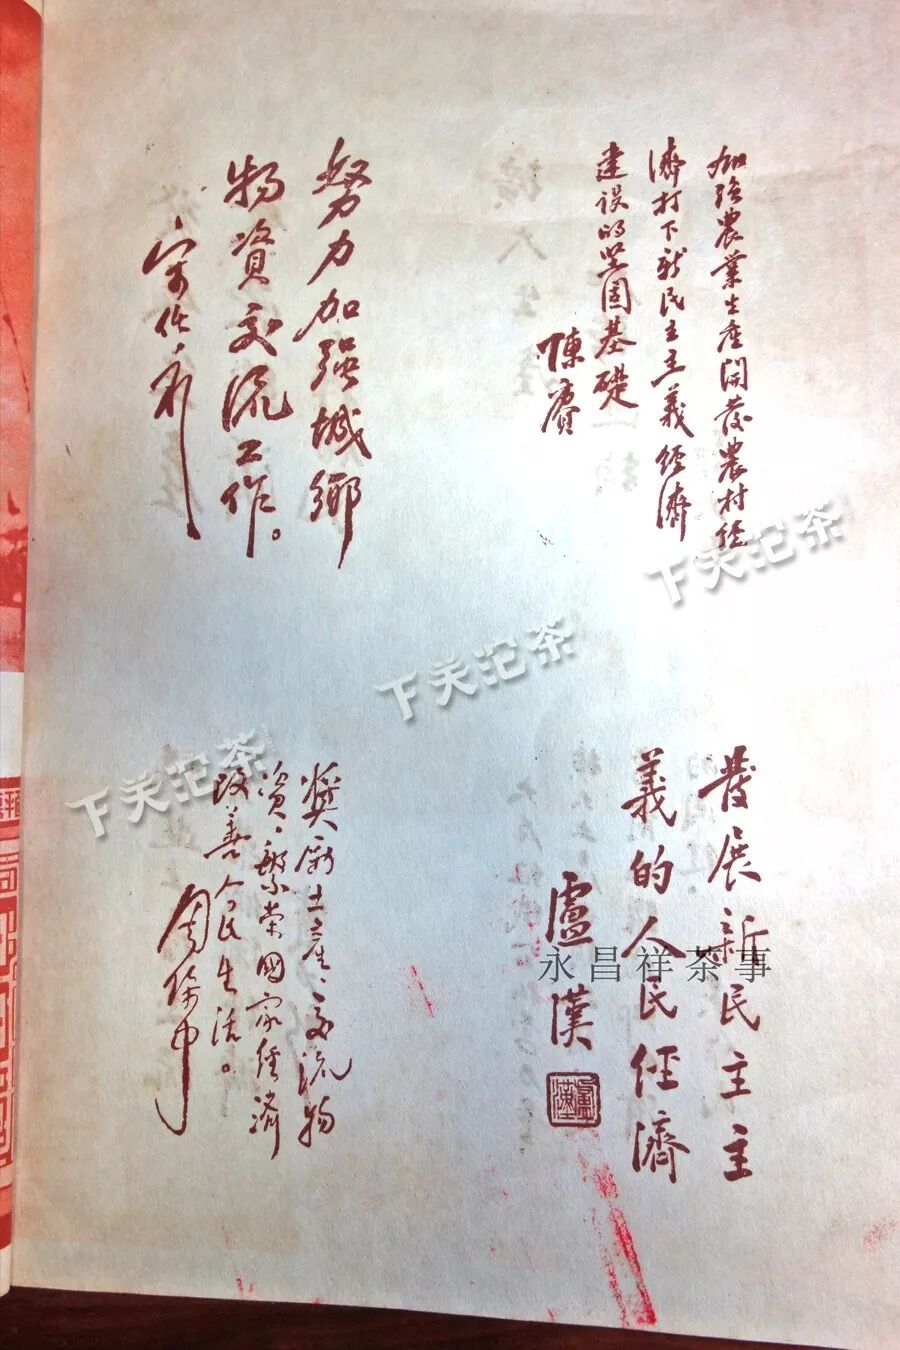 加強農業生產開發農村經
濟打下新民主主義經濟
建設的堅固基礎
陳賡
努力加强城鄉
物資交流工作。
宋任窮
發展新民主主
義的人民經濟
盧漢
盧漢
獎勵土產、交流物
資、繁荣國家經濟
改善人民生活。
周保中
下关沱茶
下关沱茶
下关沱茶
永昌祥茶事